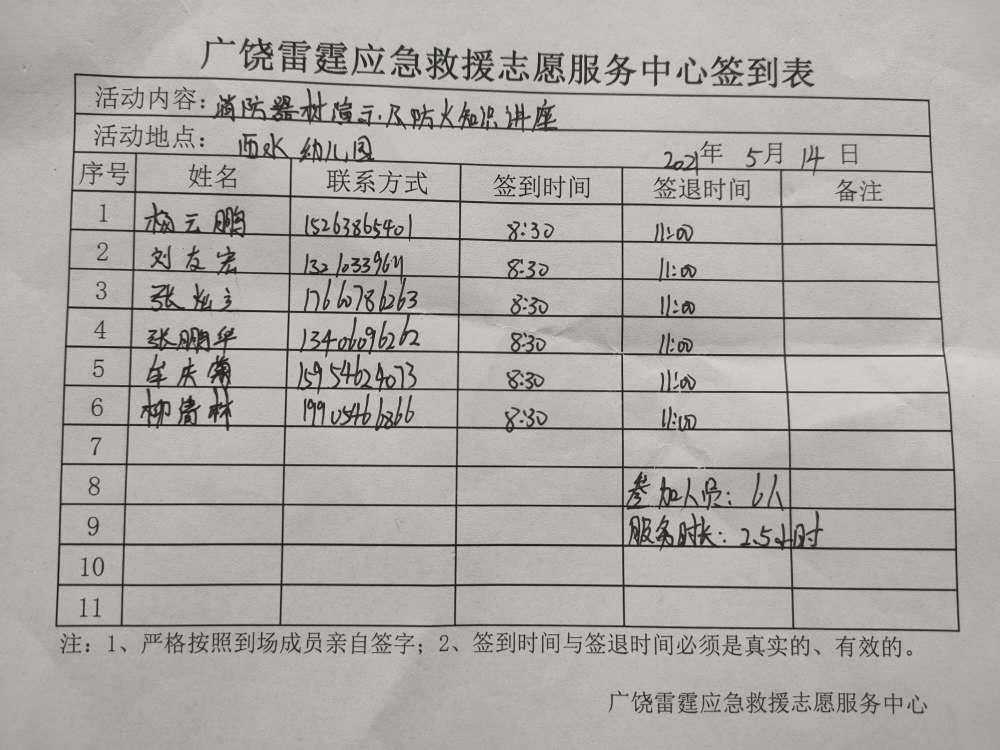 广饶雷霆应急救援志愿服务中心签到表
活动内容：消防器材演示及防火知识讲座
活动地点： 西水幼儿园 2021年 5月 14 日
序号 姓名 联系方式 签到时间 签退时间 备注
1 杨云鹏 15263865401 8:30 11:00
2 刘友宏 13210339611 8:30 11:00
3 张 17660786263 8:30 11:00
4 张鹏华 13406096262 8:30 11:00
5 牟庆 15954624073 8:30 11:00
6 柳清林 19905466866 8:30 11:00
7
8 参加人员：6人
9 服务时长：2.5小时
10
11
注：1、严格按照到场成员亲自签字；2、签到时间与签退时间必须是真实的、有效的。
广饶雷霆应急救援志愿服务中心